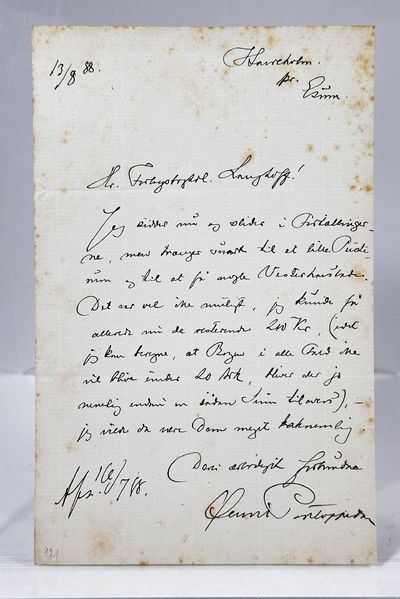 13/8 88.
Havreholm.
pr.
Esrum.
Hr. Forlagsboghdl. Langhoff!
Jeg sidder nu og slider i Fortællinger-
ne, men trænger svært til et lille Puste-
rum og til at få nogle
Det var vel ikke muligt, jeg kunde få
allerede nu de resterende 200 Kr, (idet
jeg kan beregne, at Bogen i alle Fald ikke
vil blive under 20 Ark, bliver der jo
nemlig endnu en sådan Sum tilovers), –
jeg vilde da være Dem meget taknemlig
Deres ærbødigst forbundne
Henrik Pontoppidan
Afs. 16/8 88.